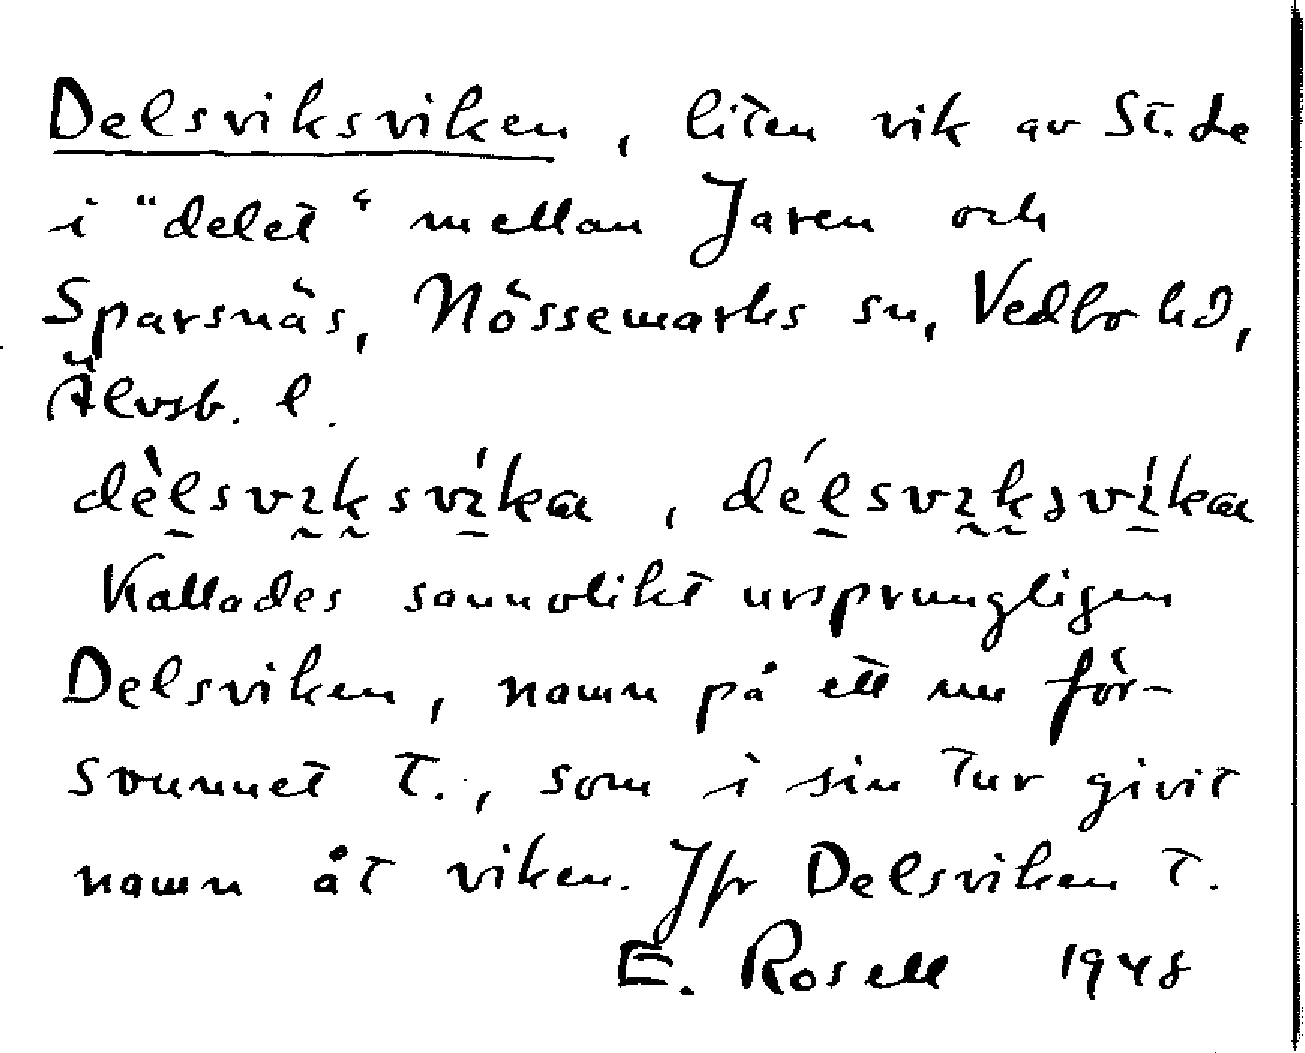 Delsviksviken, liten vik av St. Le
i "delet" mellan Jaren och
Sparsnäs, Nössemarks sn, Vedbo hd,
Älvsb. l.
Kallades sannolikt ursprungligen
Delsviken, namn på ett nu för-
svunnet t., som i sin tur givit
namn åt viken. Jfr Delsviken t.
E. Rosell 1948